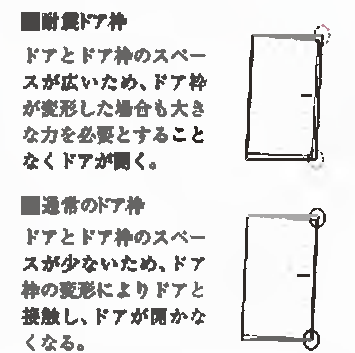 ■耐震ドア枠
ドアとドア枠のスペー
スが広いため、ドア枠
が変形した場合も大き
な力を必要とすること
なくドアが開く。
■通常のドア枠
ドアとドア枠のスペー
スが少ないため、ドア
枠の変形によりドアと
接触し、ドアが開かな
くなる。